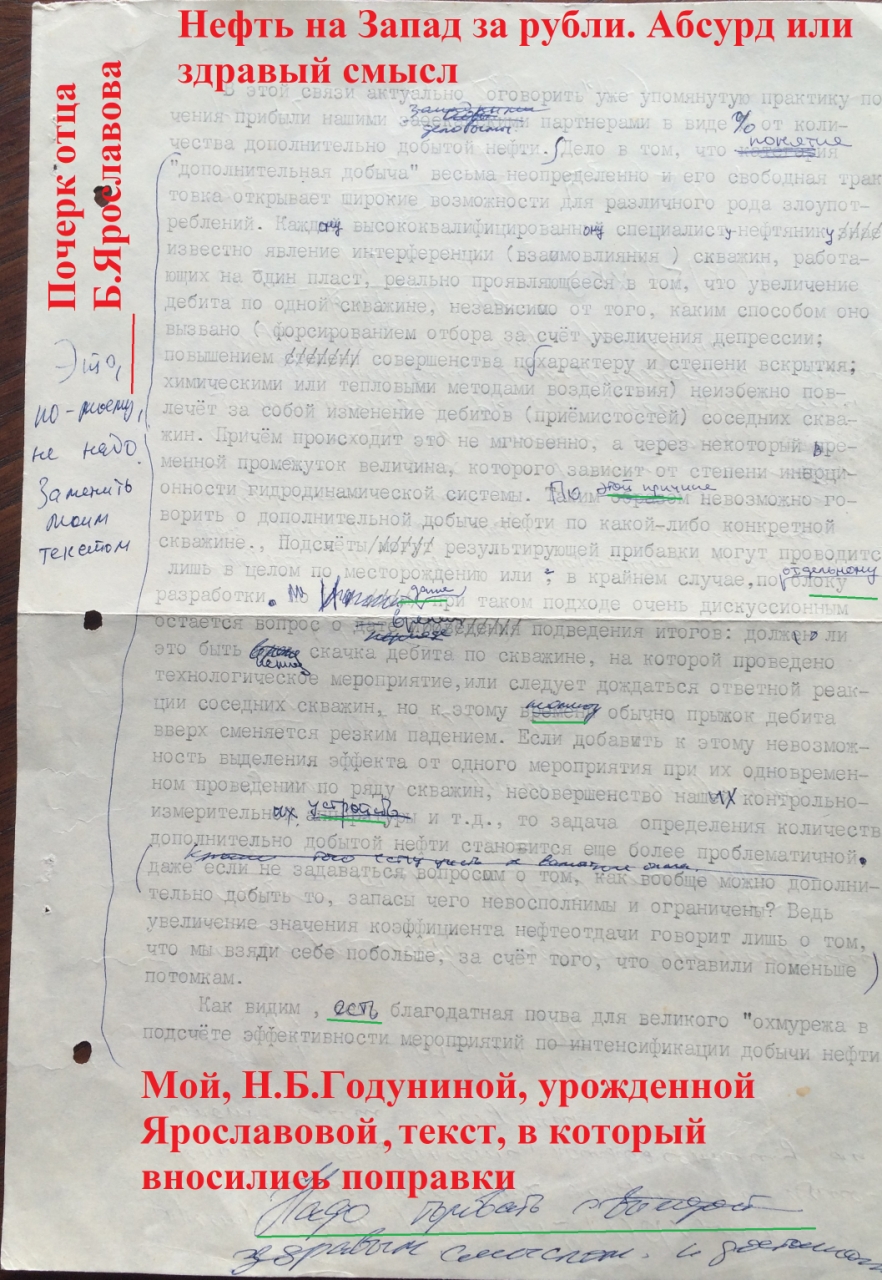 Нефть на Запад за рубли. Абсурд или
здравый смысл
Почерк отца
Б.Ярославова
В этой связи актуально оговорить уже упомянутую практику по-
чения прибыли нашими партнерами в виде % от коли-
деловыми
чества дополнительно добытой нефти. Дело в том, что понятие
"дополнительная добыча" весьма неопределенно и его свободная трак
товка открывает широкие возможности для различного рода злоупот-
реблений. Каждому высококвалифицированному специалисту-нефтянику
известно явление интерференции (взаимовлияния ) скважин, работа-
ющих на один пласт, реально проявляющееся в том, что увеличение
дебита по одной скважине, независимо от того, каким способом оно
вызвано ( форсированием отбора за счёт увеличения депрессии;
повышением совершенства по характеру и степени вскрытия;
химическими или тепловыми методами воздействия) неизбежно пов-
лечёт за собой изменение дебитов (приёмистостей) соседних сква-
жин. Причём происходит это не мгновенно, а через некоторый вре-
менной промежуток величина, которого зависит от степени инерци-
онности гидродинамической системы. По этой причине невозможно го-
ворить о дополнительной добыче нефти по какой-либо конкретной
скважине., Подсчёты результирующей прибавки могут проводитс
лишь в целом по месторождению или , в крайнем случае, по отдельному блоку
разработки. Но даже при таком подходе очень дискуссионным
остается вопрос о времени подведения итогов: должно ли
это быть скачка дебита по скважине, на которой проведено
технологическое мероприятие,или следует дождаться ответной реак-
ции соседних скважин, но к этому моменту обычно прыжок дебита
вверх сменяется резким падением. Если добавить к этому невозмож-
ность выделения эффекта от одного мероприятия при их одновремен-
ном проведении по ряду скважин, несовершенство наших контрольно-
измерительных устройств и т.д., то задача определения количеств
дополнительно добытой нефти становится еще более проблематичной.
даже если не задаваться вопросом о том, как вообще можно дополни-
тельно добыть то, запасы чего невосполнимы и ограничены? Ведь
увеличение значения коэффициента нефтеотдачи говорит лишь о том,
что мы взяди себе побольше, за счёт того, что оставили поменьше
потомкам.
Как видим , есть благодатная почва для великого "охмурежа в
подсчёте эффективности мероприятий по интенсификации добычи нефти
Это,
по-моему,
не надо.
Заменить
моим
текстом
Мой, Н.Б.Годуниной, урожденной
Ярославовой, текст, в который
вносились поправки
Надо
здравым смыслом. и